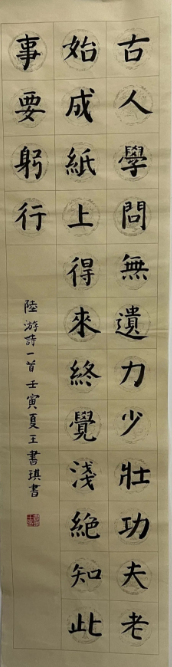 古人學問無遺力少壯功夫老
始成紙上得來終覺淺絶知此
事要躬行
陸游詩一首壬寅夏王書琪書